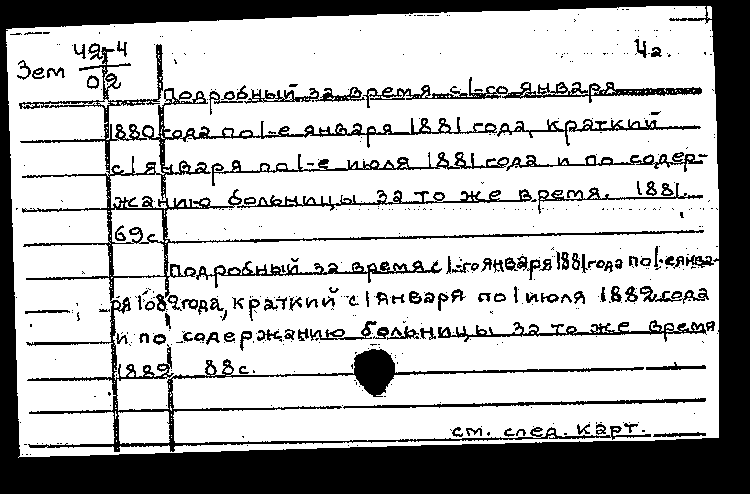 42-4 4а.
Зем
02
Подробный за время с 1-го января
1880 года по 1-е января 1881 года, краткий
с 1 января по 1-е июля 1881 года и по содер-
жанию больницы за то же время. 1881.
69с.
Подробный за время с 1-го января 1881 года по 1-е янва-
ря 1882 года, краткий с 1 января по 1 июля 1882 года
и по содержанию больницы за то же время
1882 88с.
см. след. карт.